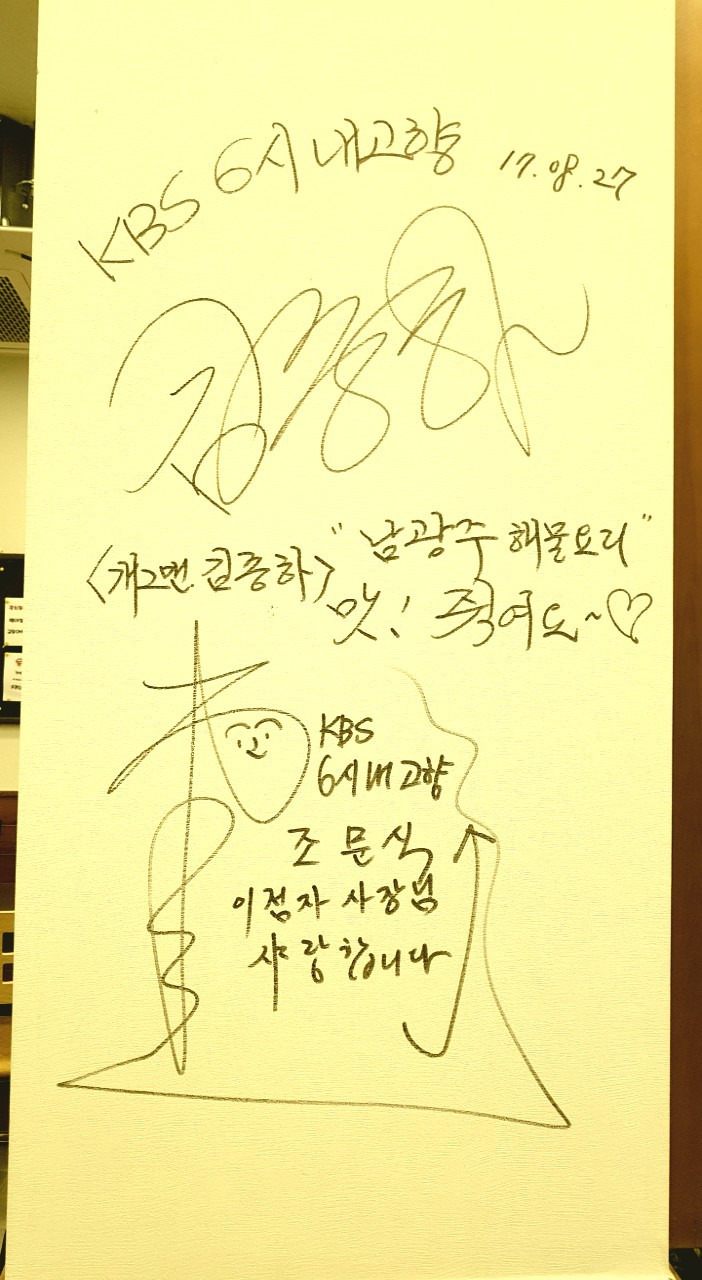 KBS 6시 내고향 17.08.27
<개그맨 김종하> "남광주 해물요리"
맛! 죽여요~♡
KBS
6시 내고향
조문식
이점자 사장님
사랑합니다